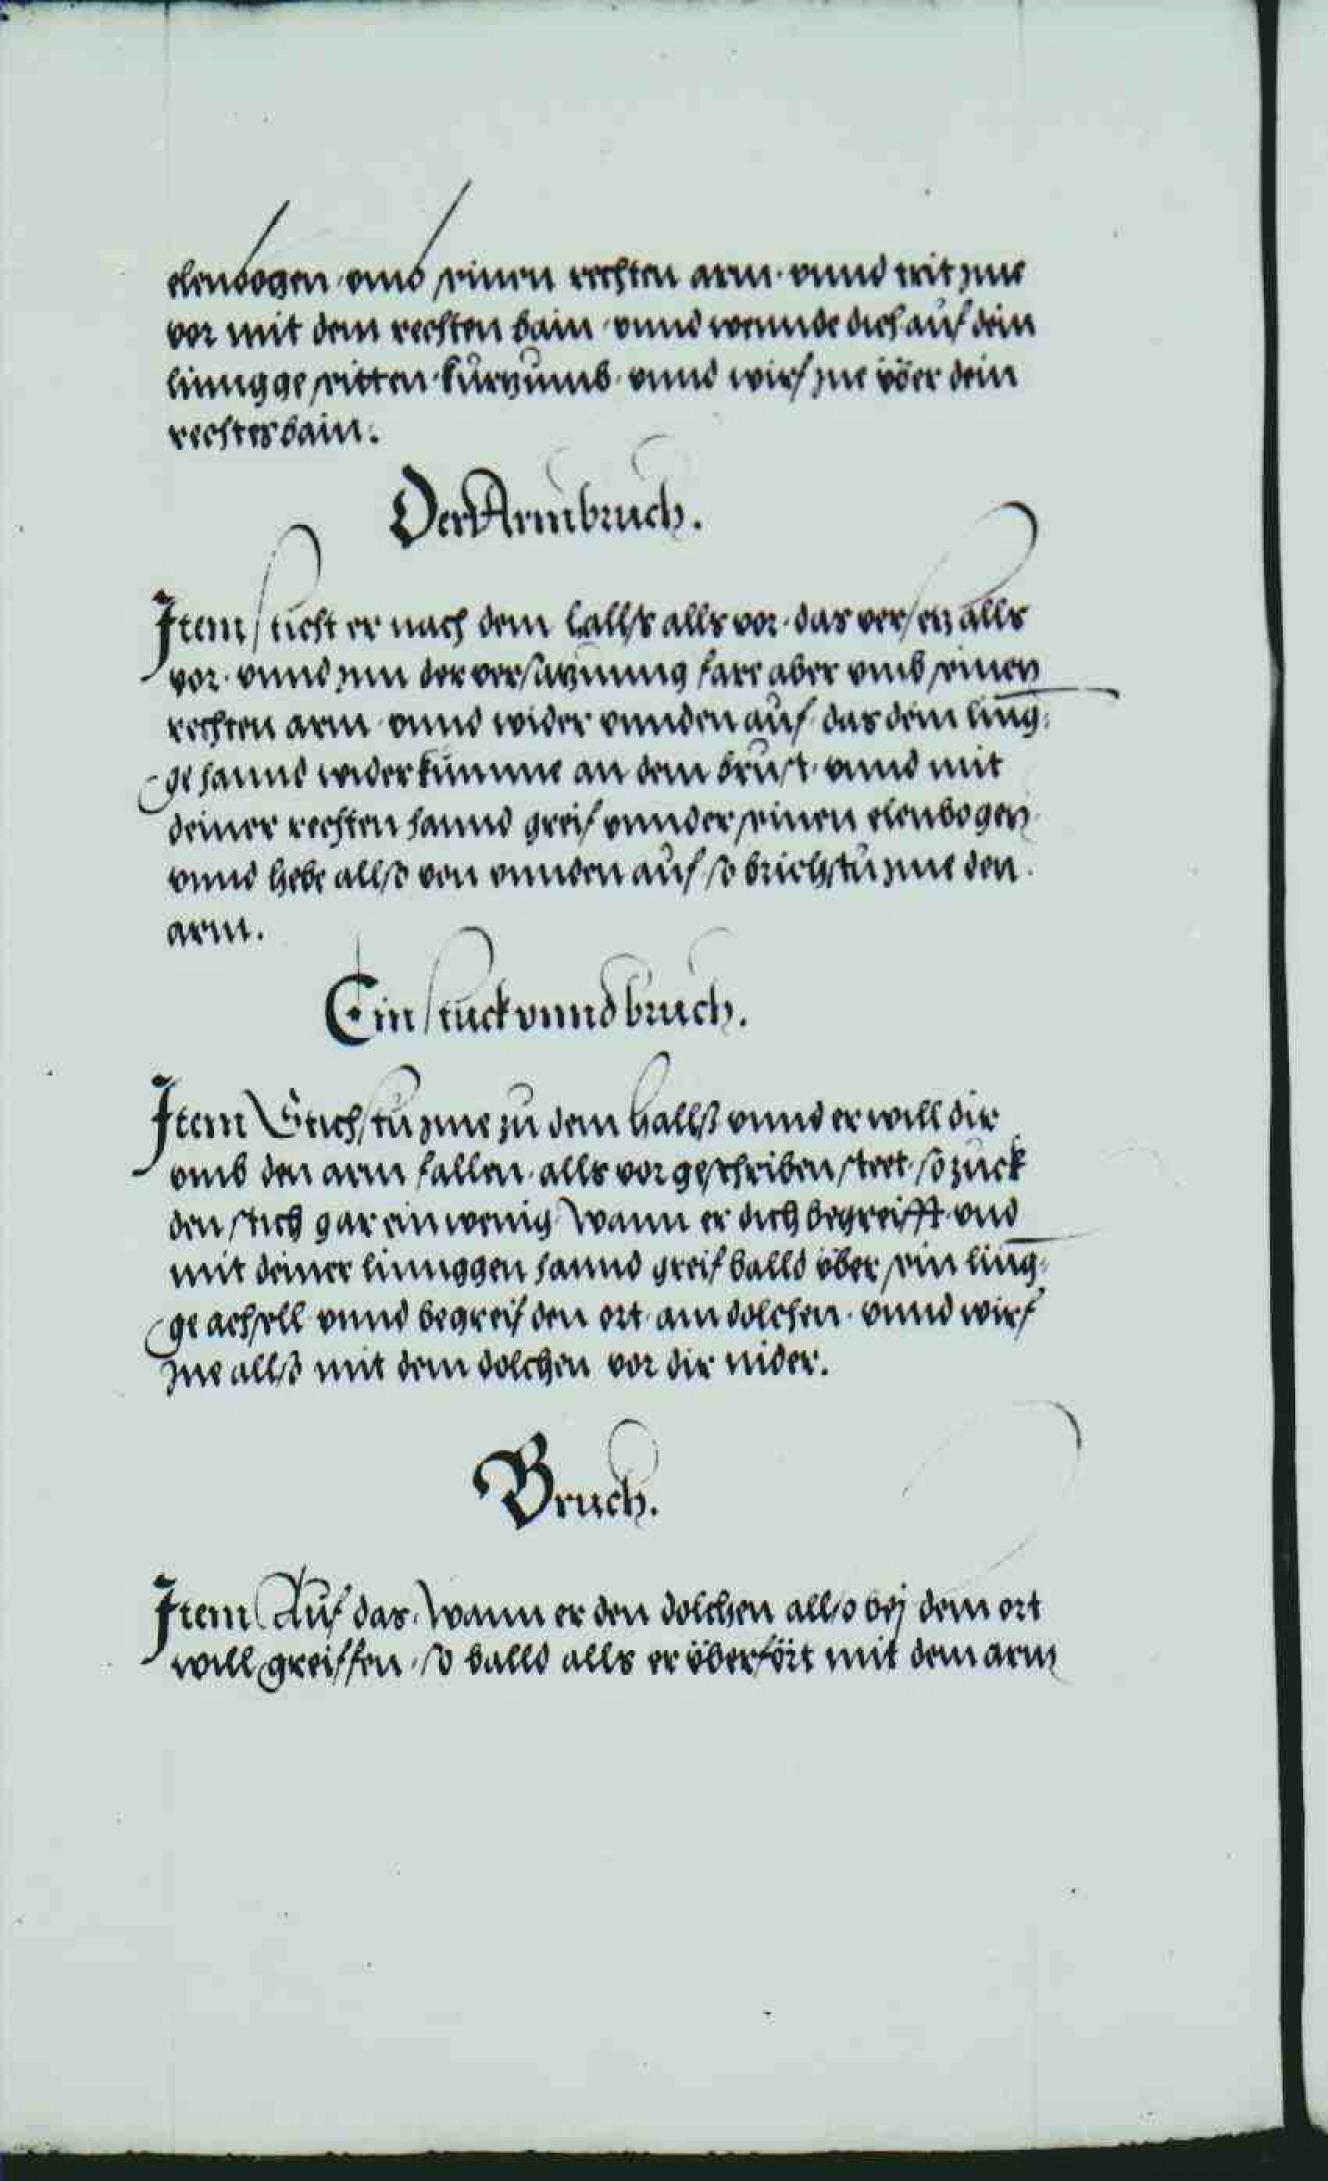 elenbogen vmb seinen rechten arm · vnnd trit jme
vor mit dem rechten bain · vnnd wennde dich auf dein
linngge seitten · kurtzumb · vnnd wirf jne über dein
rechtes bain.
Der Armbruch.
Item sticht er nach dem halls alls vor · das versetz alls
vor · vnnd jnn der versatzunng fare aber vmb seinen
rechten arm · vnnd wider vnnden auf · das dein ling:
ge hannd wider kumme an dein brust · vnnd mit
deiner rechten hannd greif vnnder seinen elenbogen
vnnd hebe allso von vnnden auf so brichstu jme den
arm.
Ein stuck vnnd bruch.
Item Stichstu jme zu dem hallß vnnd er will dir
vmb den arm fallen · alls vor geschriben steet · so zuck
den stich gar ein wenig Wann er dich begreifft · vnd
mit deiner linnggen hannd greif balld über sein ling:
ge achsell vnnd begreif den ort am dolchen · vnnd wirf
jne allso mit dem dolchen vor dir nider.
Bruch.
Item Auf das · Wann er den dolchen allso bej dem ort
will greiffen · so balld alls er überfört mit dem arm